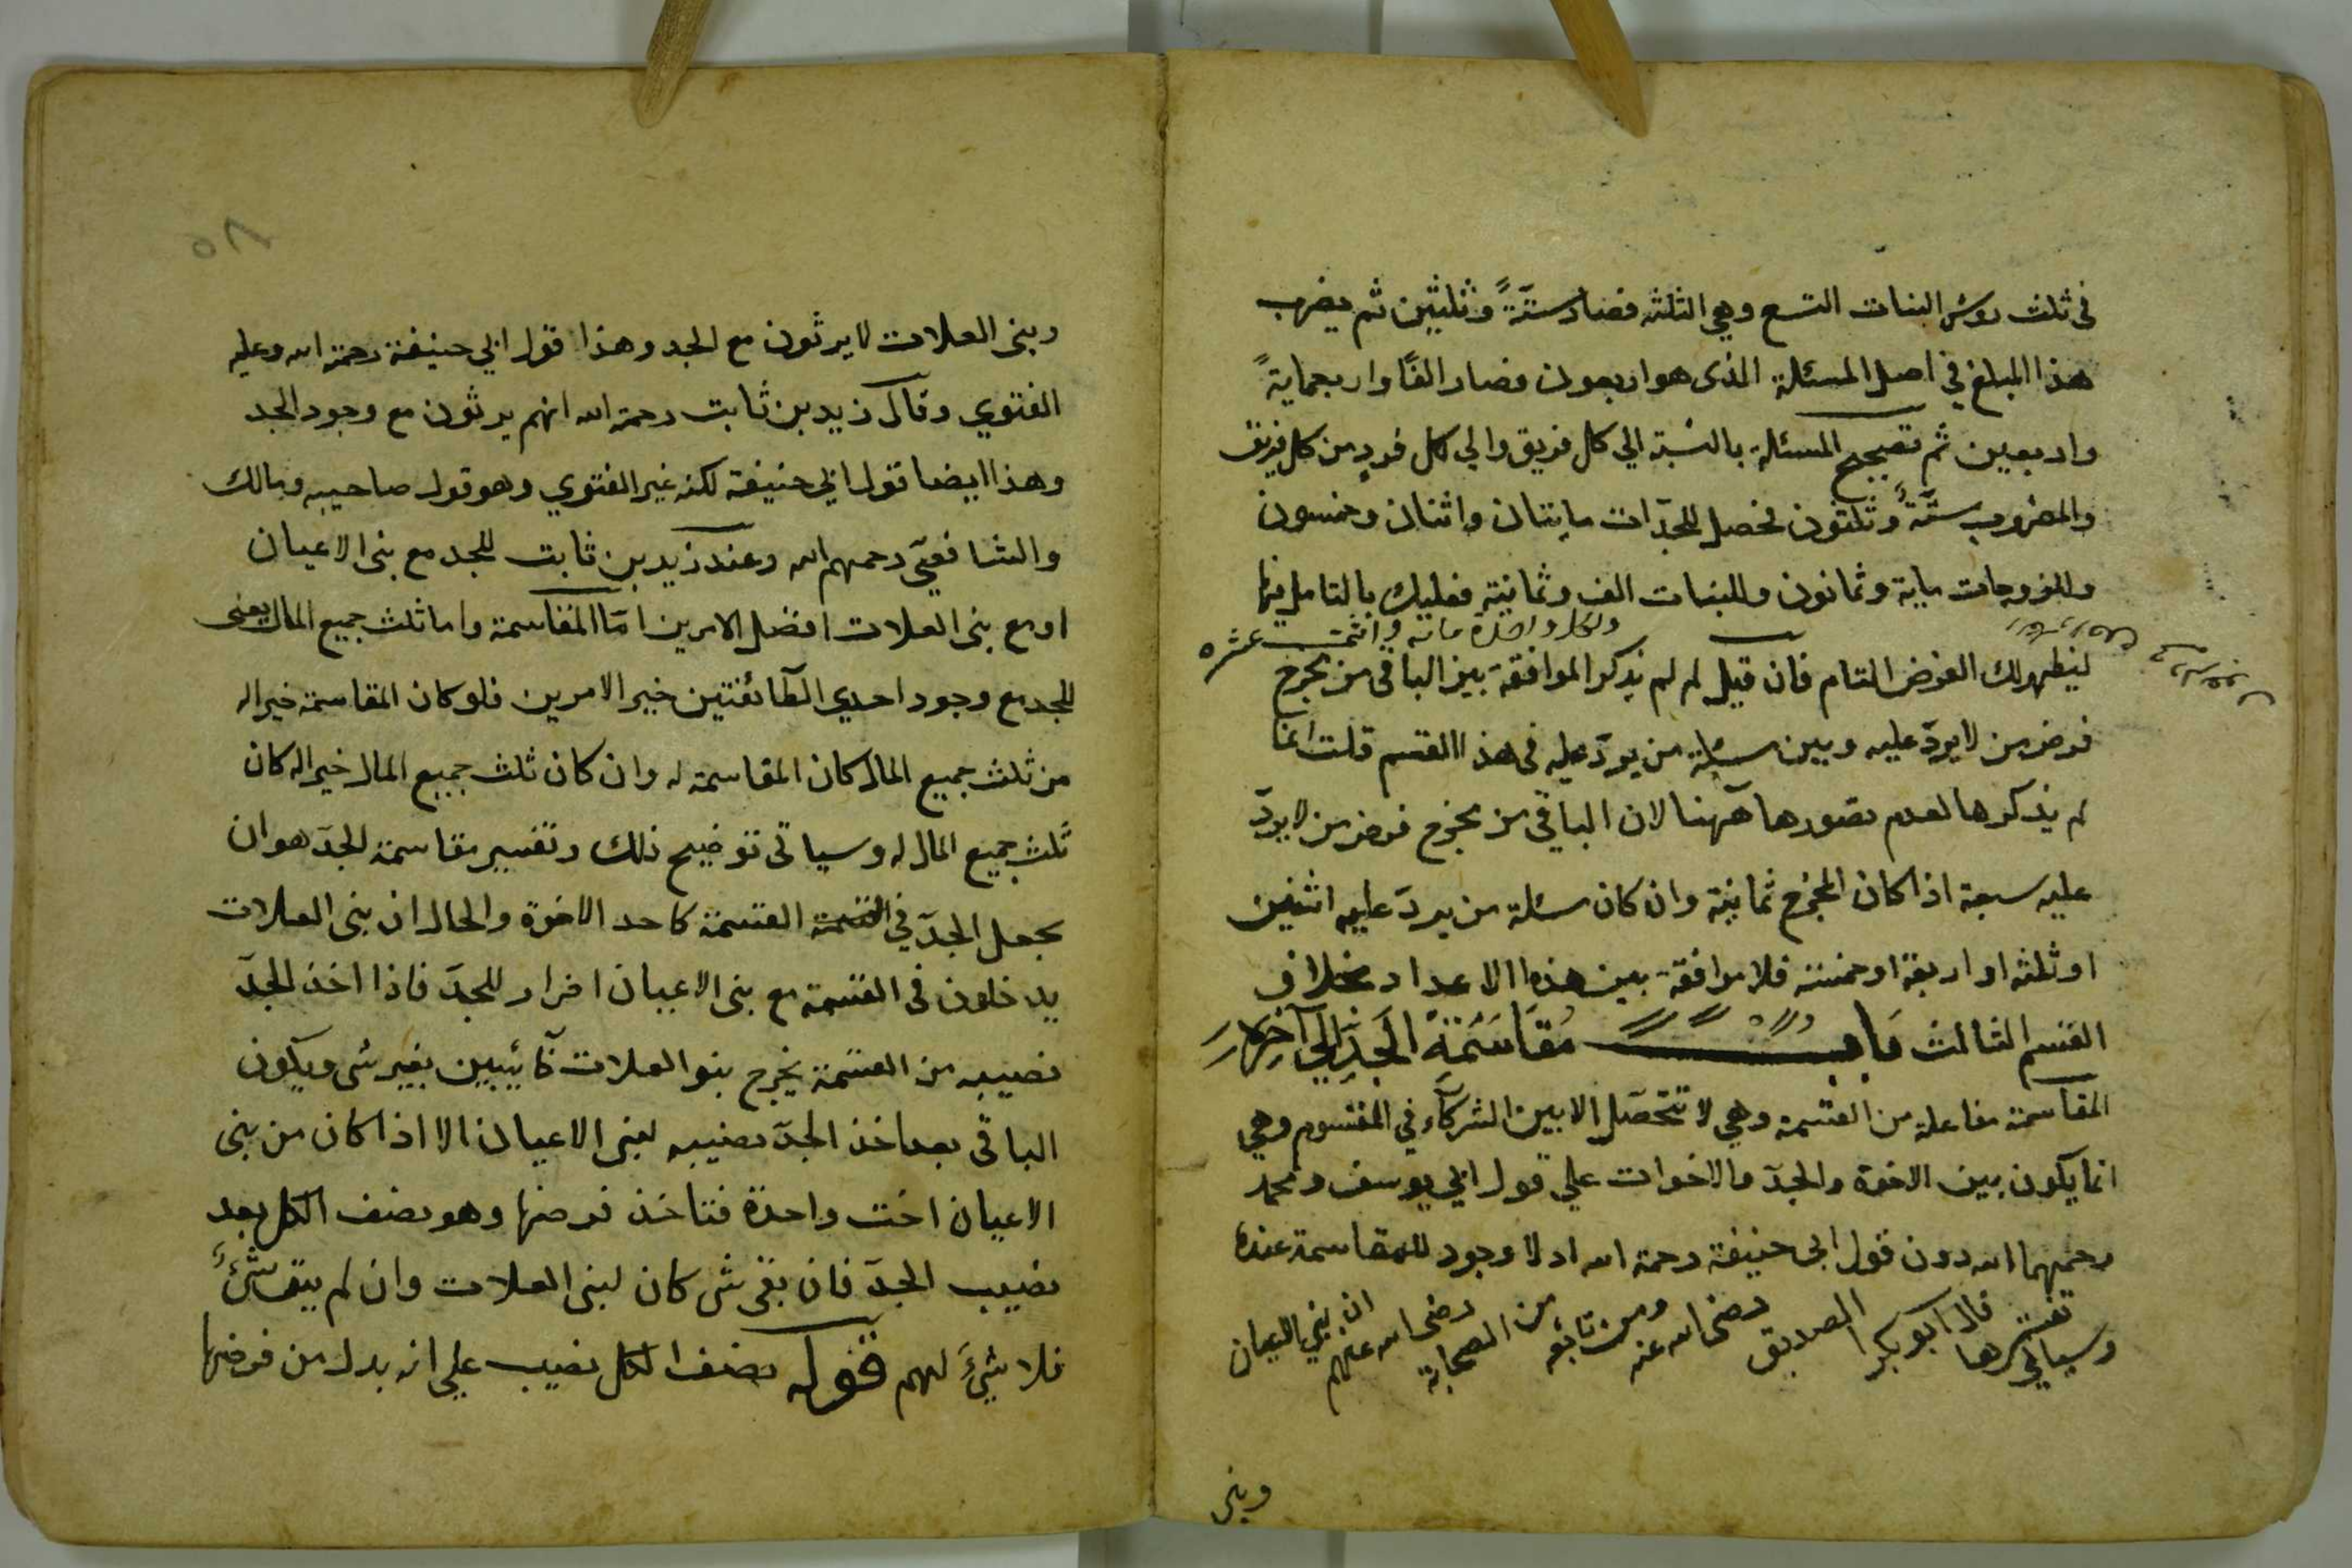 فى ثلث روٴس البنات التسع وهي الثلثه فصار ستّةً وثلثين ثم يضرب
هذا المبلغ في اصل المسئلة الذى هو اربعون فصار الفًا واربعمايةً
واربعين ثم تصحيح المسئلة بالنسبة الي كل فريق والي كل فردٍ من كل فريق
والمضروب ستّةٌ وثلثون فحصل للجدّات مايتان واثنان وخمسون
وللزوجات ماية وثمانون وللبنات الف وثمانية فعليك بالتامل فيها
ولكل واحدة ماته واثنتى عشره
ليظهر لك الغرض التام فان قيل لم لم يذكر الموافقة بين الباقى من مخرج
فرض من لا يردّ عليه وبين مسئلة من يردّ عليه فى هذا القسم قلت انما
لم يذكرها لعدم تصورها ههنا لان الباقي من مخرج فرض من لا يردّ
عليه سبعة اذا كان المخرج ثمانية وان كان مسئلة من يردّ عليه اثنين
او ثلثه او اربعة او خمسة فلا موافقة بين هذه الاعداد بخلاف
القسم الثالث باب مُقَاسَمَةِ الجَدِّ الي آخره
المقاسمة مفاعلة من القسمة وهي لا تتحصّل الا بين الشركآء في المقسوم وهي
انما يكون بين الاخوة والجدّ والاخوات علي قول ابي يوسف ومحمد
رحمهما الله دون قول ابى حنيفة رحمة الله اد لا وجود للمقاسمة عنده
وسياتي تفسيرها قال ابو بكر الصديق رضى الله عنه ومن تابعه من الصحابة رضى الله عنهم ان بني العيان
وبنى
وبنى العلات لا يرثون مع الجد وهذا قول ابي حنيفة رحمة الله وعليه
الفتوي وقال زيد بن ثابت رحمة الله انهم يرثون مع وجود الجد
وهذا ايضا قول ابي حنيفة لكنه غير الفتوي وهو قول صاحبيه ومالك
والشافعيّ رحمهم الله وعند زيد بن ثابت للجد مع بنى الاعيان
او مع بنى العلات افضل الامرين امّا المقاسمة واما ثلث جميع المال يعنى
للجد مع وجود احدي الطآئفتين خير الامرين فلو كان المقاسمة خيرا له
من ثلث جميع المال كان المقاسمة له وان كان ثلث جميع المال خيرا له كان
ثلث جميع المال له وسياتى توضيح ذلك وتفسير مقاسمة الجدّ هو ان
يجعل الجدّ في القسمة القسمة كاحد الاخوة والحال ان بنى العلات
يدخلون فى القسمة مع بنى الاعيان اضرار للجدّ فاذا اخذ الجدّ
نصيبه من القسمة يخرج بنو العلات خآئبين بغير شى ويكون
الباقى بعد اخذ الجدّ نصيبه لبنى الاعيان الا اذا كان من بنى
الاعيان اخت واحدة فتاخذ فرضها وهو نصف الكل بعد
نصيب الجدّ فان بقى شى كان لبنى العلات وان لم يبق شىٌٔ
فلا شىَٔ لهم قوله نصف الكل نصيب علي انه بدل من فرضها